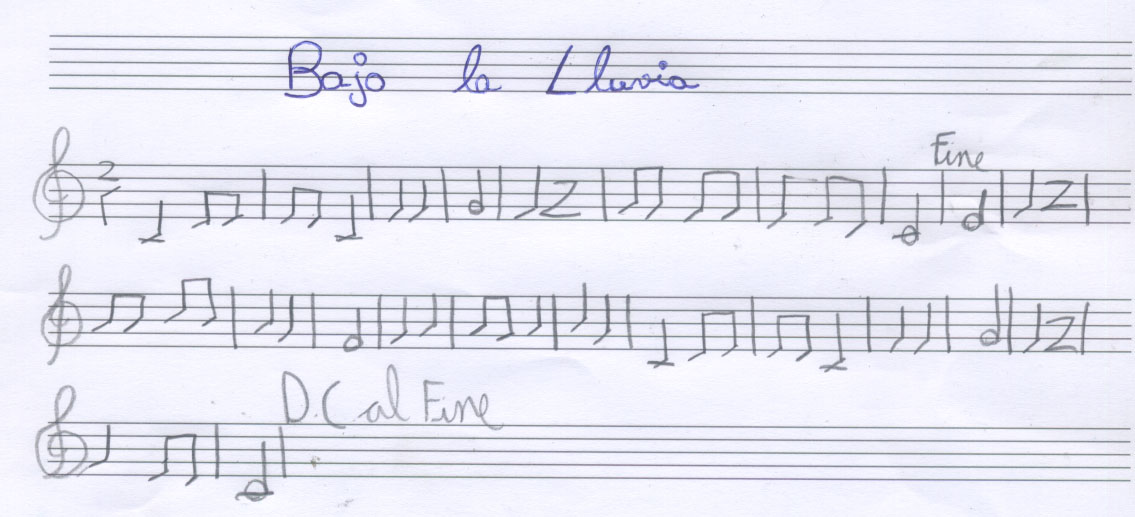 Bajo la Lluvia
Fine
2
D.C al Fine